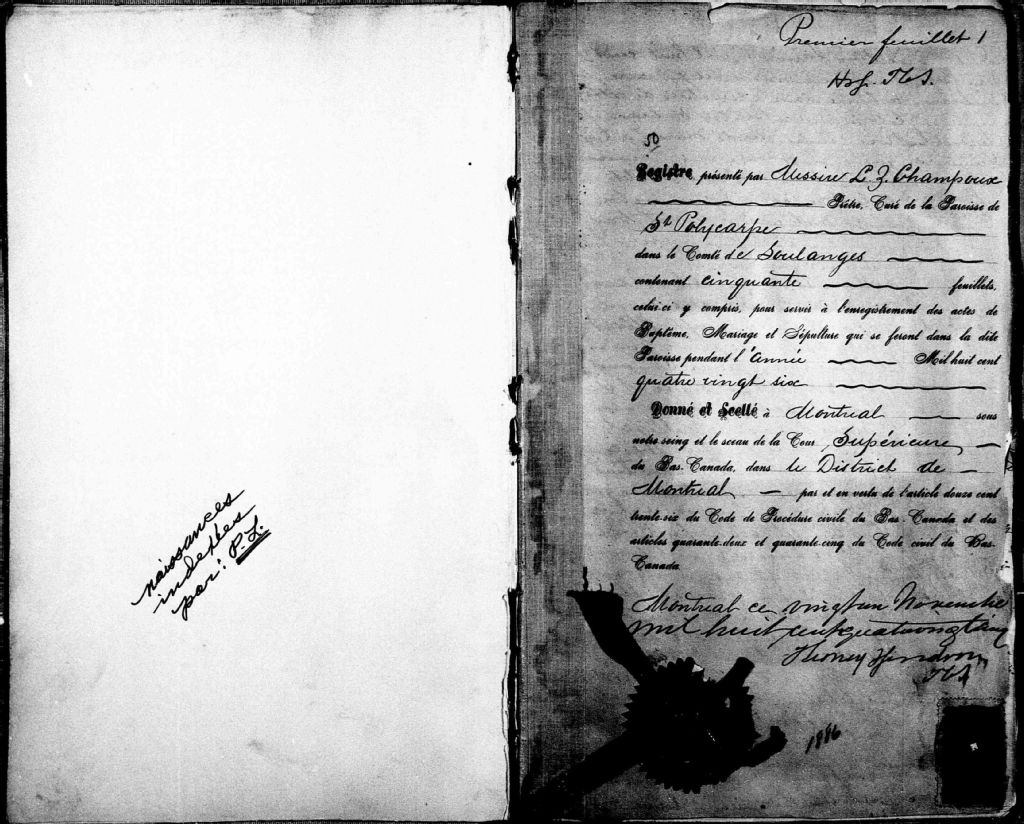 naissances
indexées
par: P. L.
Premier feuillet 1
50
Registre présenté par Messire L. Z. Champoux
Prêtre, Curé de la Paroisse de
St Polycarpe
dans le Comté de Soulanges
contenant cinquante feuillets,
celui-ci y compris, pour servir à l'enregistrement des actes de
Baptême, Mariage et Sépulture qui se feront dans la dite
Paroisse pendant l'année Mil huit cent
quatre vingt six
Donné et Scellé à Montreal sous
notre seing et le sceau de la Cour Supérieure
du Bas-Canada, dans le District de
Montreal par et en vertu de l'article douze cent
trente-six du Code de Procédure civile du Bas-Canada et des
articles quarante-deux et quarante-cinq du Code civil du Bas-
Canada
Montreal ce vingt un Novembre
mil huit cent quatrevingt cinq
1886